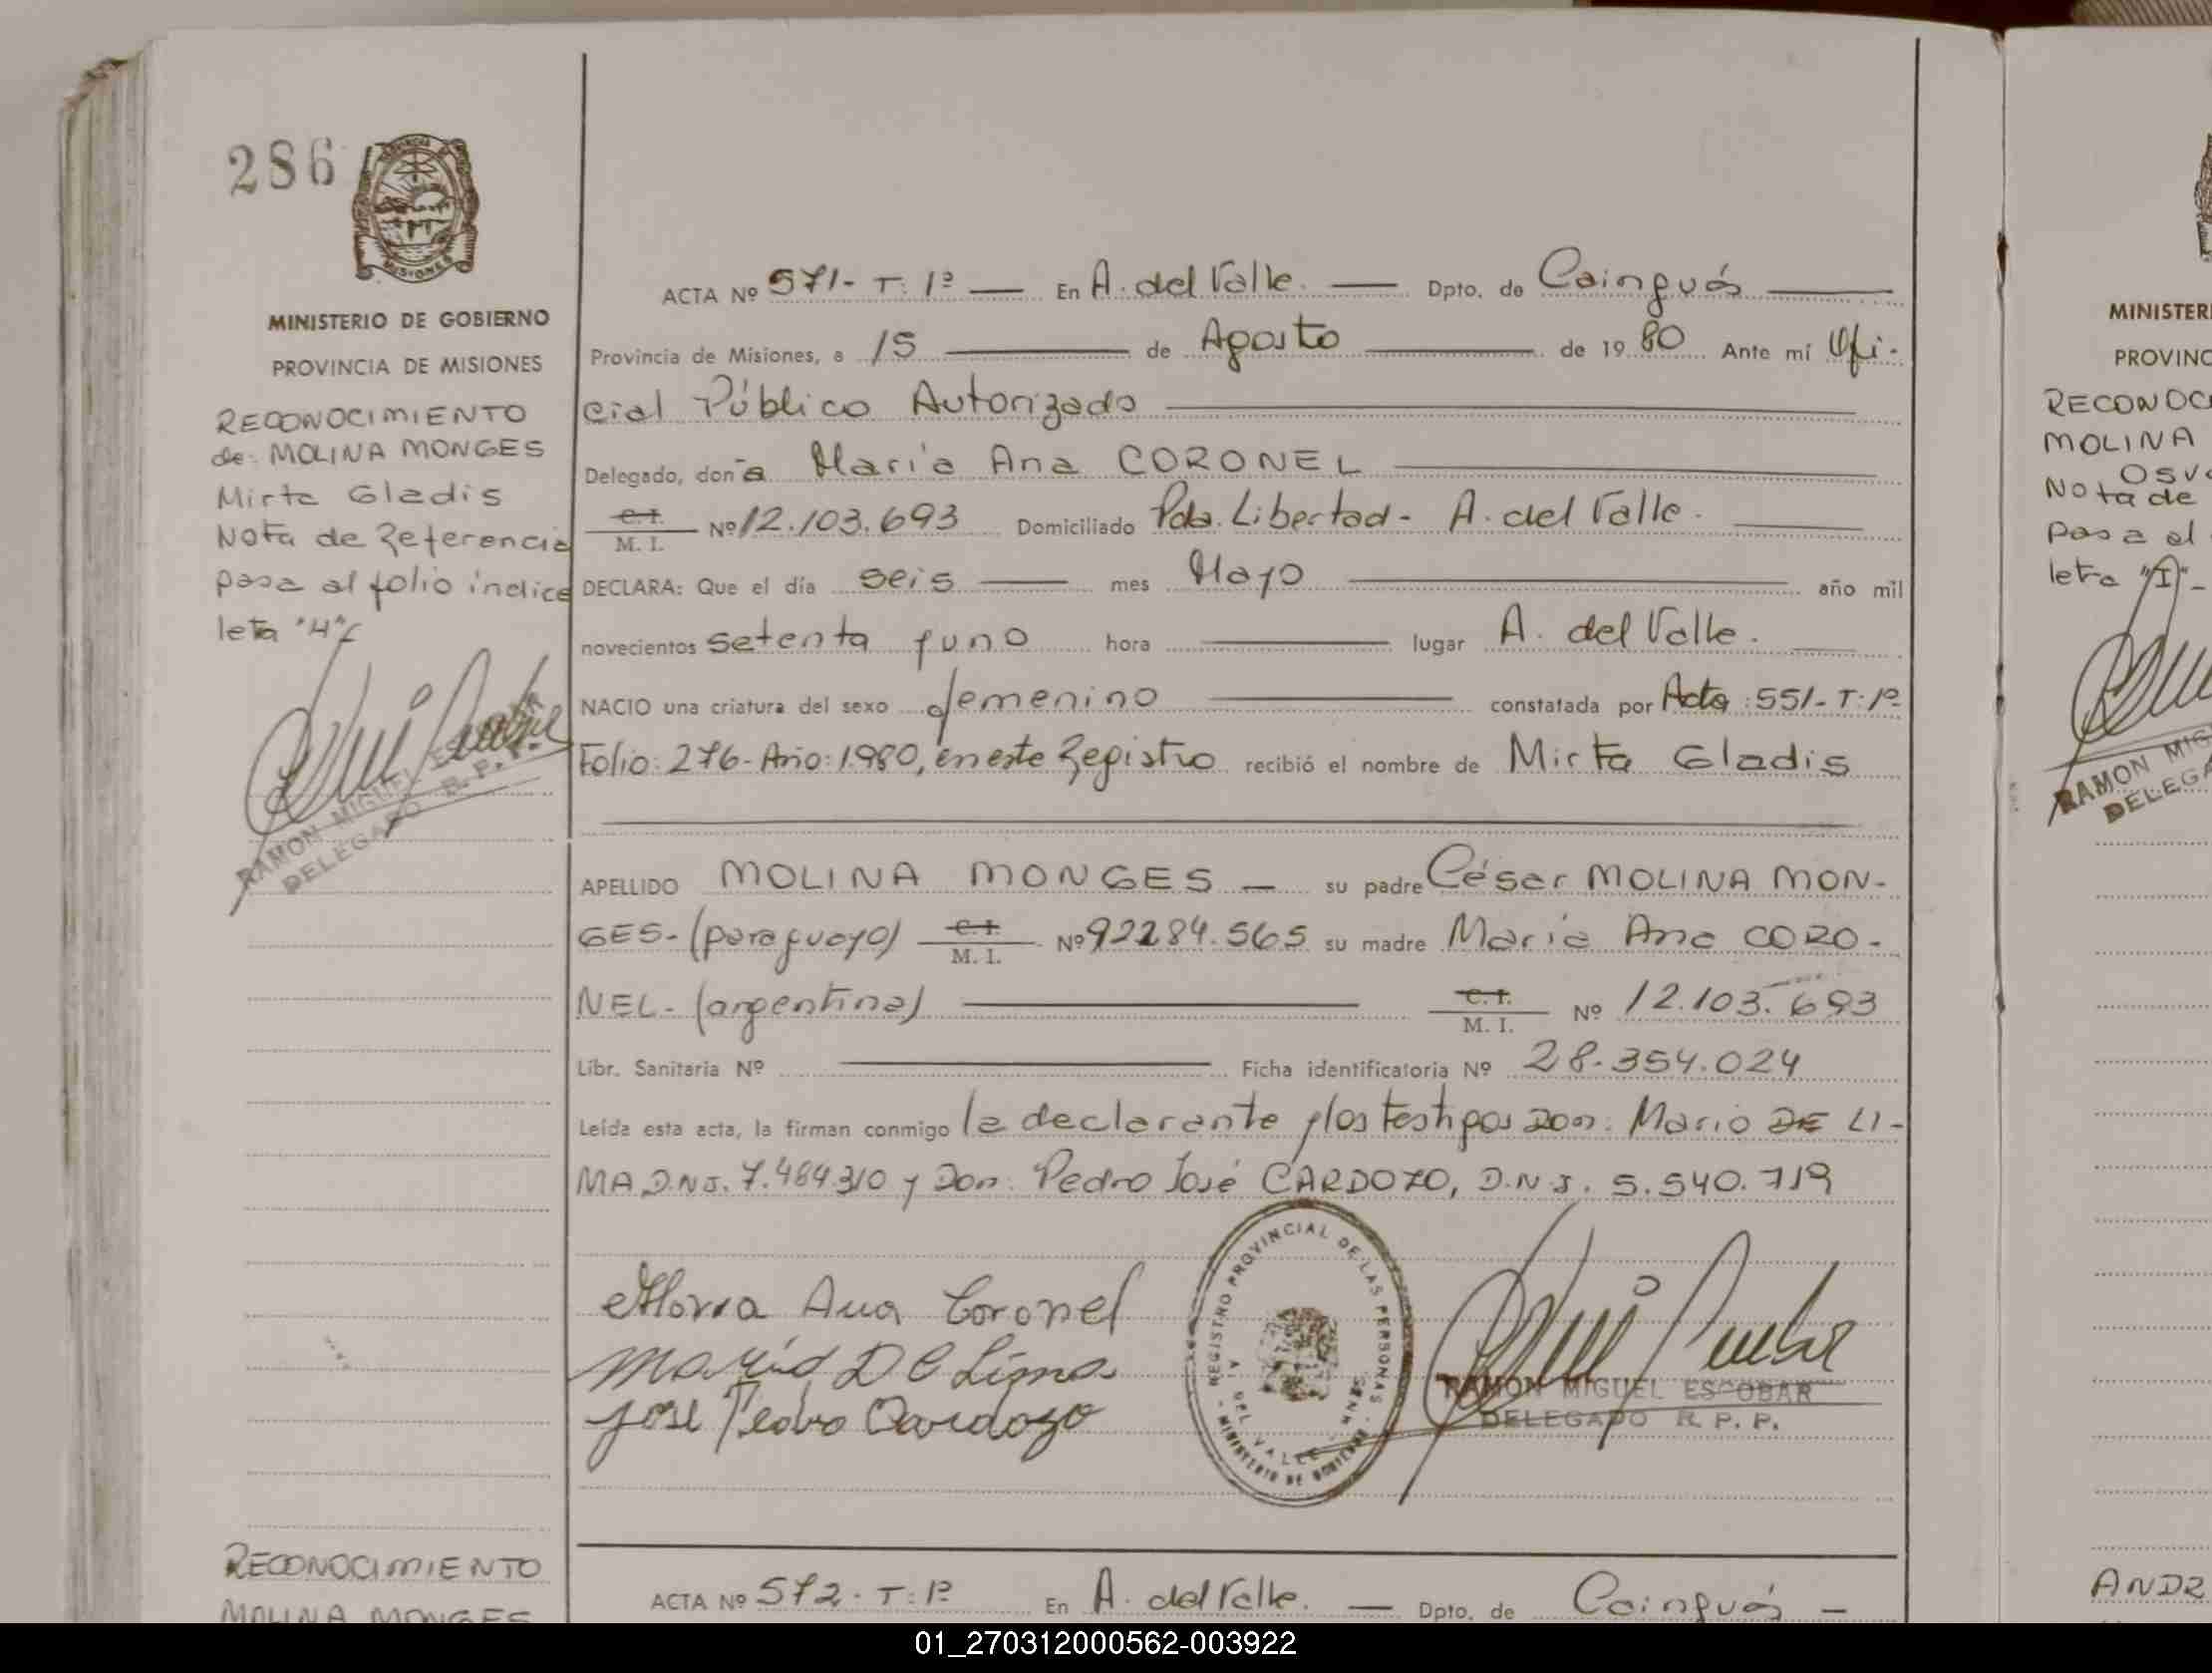 286
PROVINCIA DE
MISIONES
MINISTERIO DE GOBIERNO
PROVINCIA DE MISIONES
RECONOCIMIENTO
de: MOLINA MONGES
Mirta Gladis
Nota de Referencia
pasa al folio índice
letra "H"
RAMON MIGUEL ESCOBAR
DELEGADO R. P. P.
ACTA Nº 571- T: 1º — En A. del Valle. — Dpto. de Cainguás —
Provincia de Misiones, a 15 — de Agosto — de 1980 Ante mí Ofi-
cial Público Autorizado —
Delegado, don̄a María Ana CORONEL —
C. I.
M. I. Nº 12.103.693 Domiciliado Pda. Libertad- A. del Valle. —
DECLARA: Que el día seis — mes Mayo — año mil
novecientos setenta y uno hora — lugar A. del Valle. —
NACIO una criatura del sexo femenino — constatada por Acta: 551- T: 1º
Folio: 276- Año: 1980, en este Registro recibió el nombre de Mirta Gladis
APELLIDO MOLINA MONGES — su padre César MOLINA MON-
GES- (paraguayo) C. I.
M. I. Nº 92284.565 su madre María Ana CORO-
NEL- (argentina) — C. I.
M. I. Nº 12.103.693
Libr. Sanitaria Nº — Ficha identificatoria Nº 28.354.024
Leída esta acta, la firman conmigo la declarante y los testigos Don: Mario DE LI-
MA D.N.I. 7.484310 y Don: Pedro José CARDOZO, D.N.I. 5.540.719
María Ana Coronel
Mario De Lima
José Pedro Cardozo
REGISTRO PROVINCIAL DE LAS PERSONAS
A. DEL VALLE
MINISTERIO DE GOBIERNO
RAMON MIGUEL ESCOBAR
DELEGADO R. P. P.
RECONOCIMIENTO
MOLINA MONGES
ACTA Nº 572. T: 1º En A. del Valle. — Dpto. de Cainguás —
MINISTER
PROVINC
RECONOC
MOLINA
OSV
Nota de
Pasa al
letra "I"-
RAMON MIG
DELEGA
ANDR
01_270312000562-003922